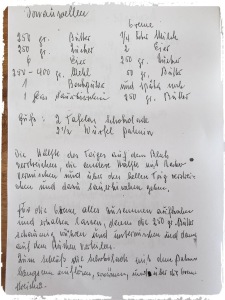 Donauwellen
Creme
250 gr. Butter 3/4 Ltr Milch
250 gr. Zucker 2 Eier
6 Eier 250 gr. Zucker
250 - 400 gr. Mehl 50 gr. Butter
1 Backpulver und später noch
1 Glas Sauerkirschen 250 gr. Butter
Guß: 2 Tafeln Schokolade
2 1/2 Würfel Palmin
Die Hälfte des Teiges auf dem Blech
verstreichen die andere Hälfte mit Kakao
vermischen und über den hellen Teig verstrei-
chen und dann Sauerkirschen geben.
Für die Creme alles zusammen aufkochen
und erkalten lassen, dann die 250 gr. Butter
schaumig rühren und untermischen und dann
auf den Kuchen verteilen.
Zum Schluß die Schokolade mit dem Palmin
auflösen, und über die Creme
streichen.